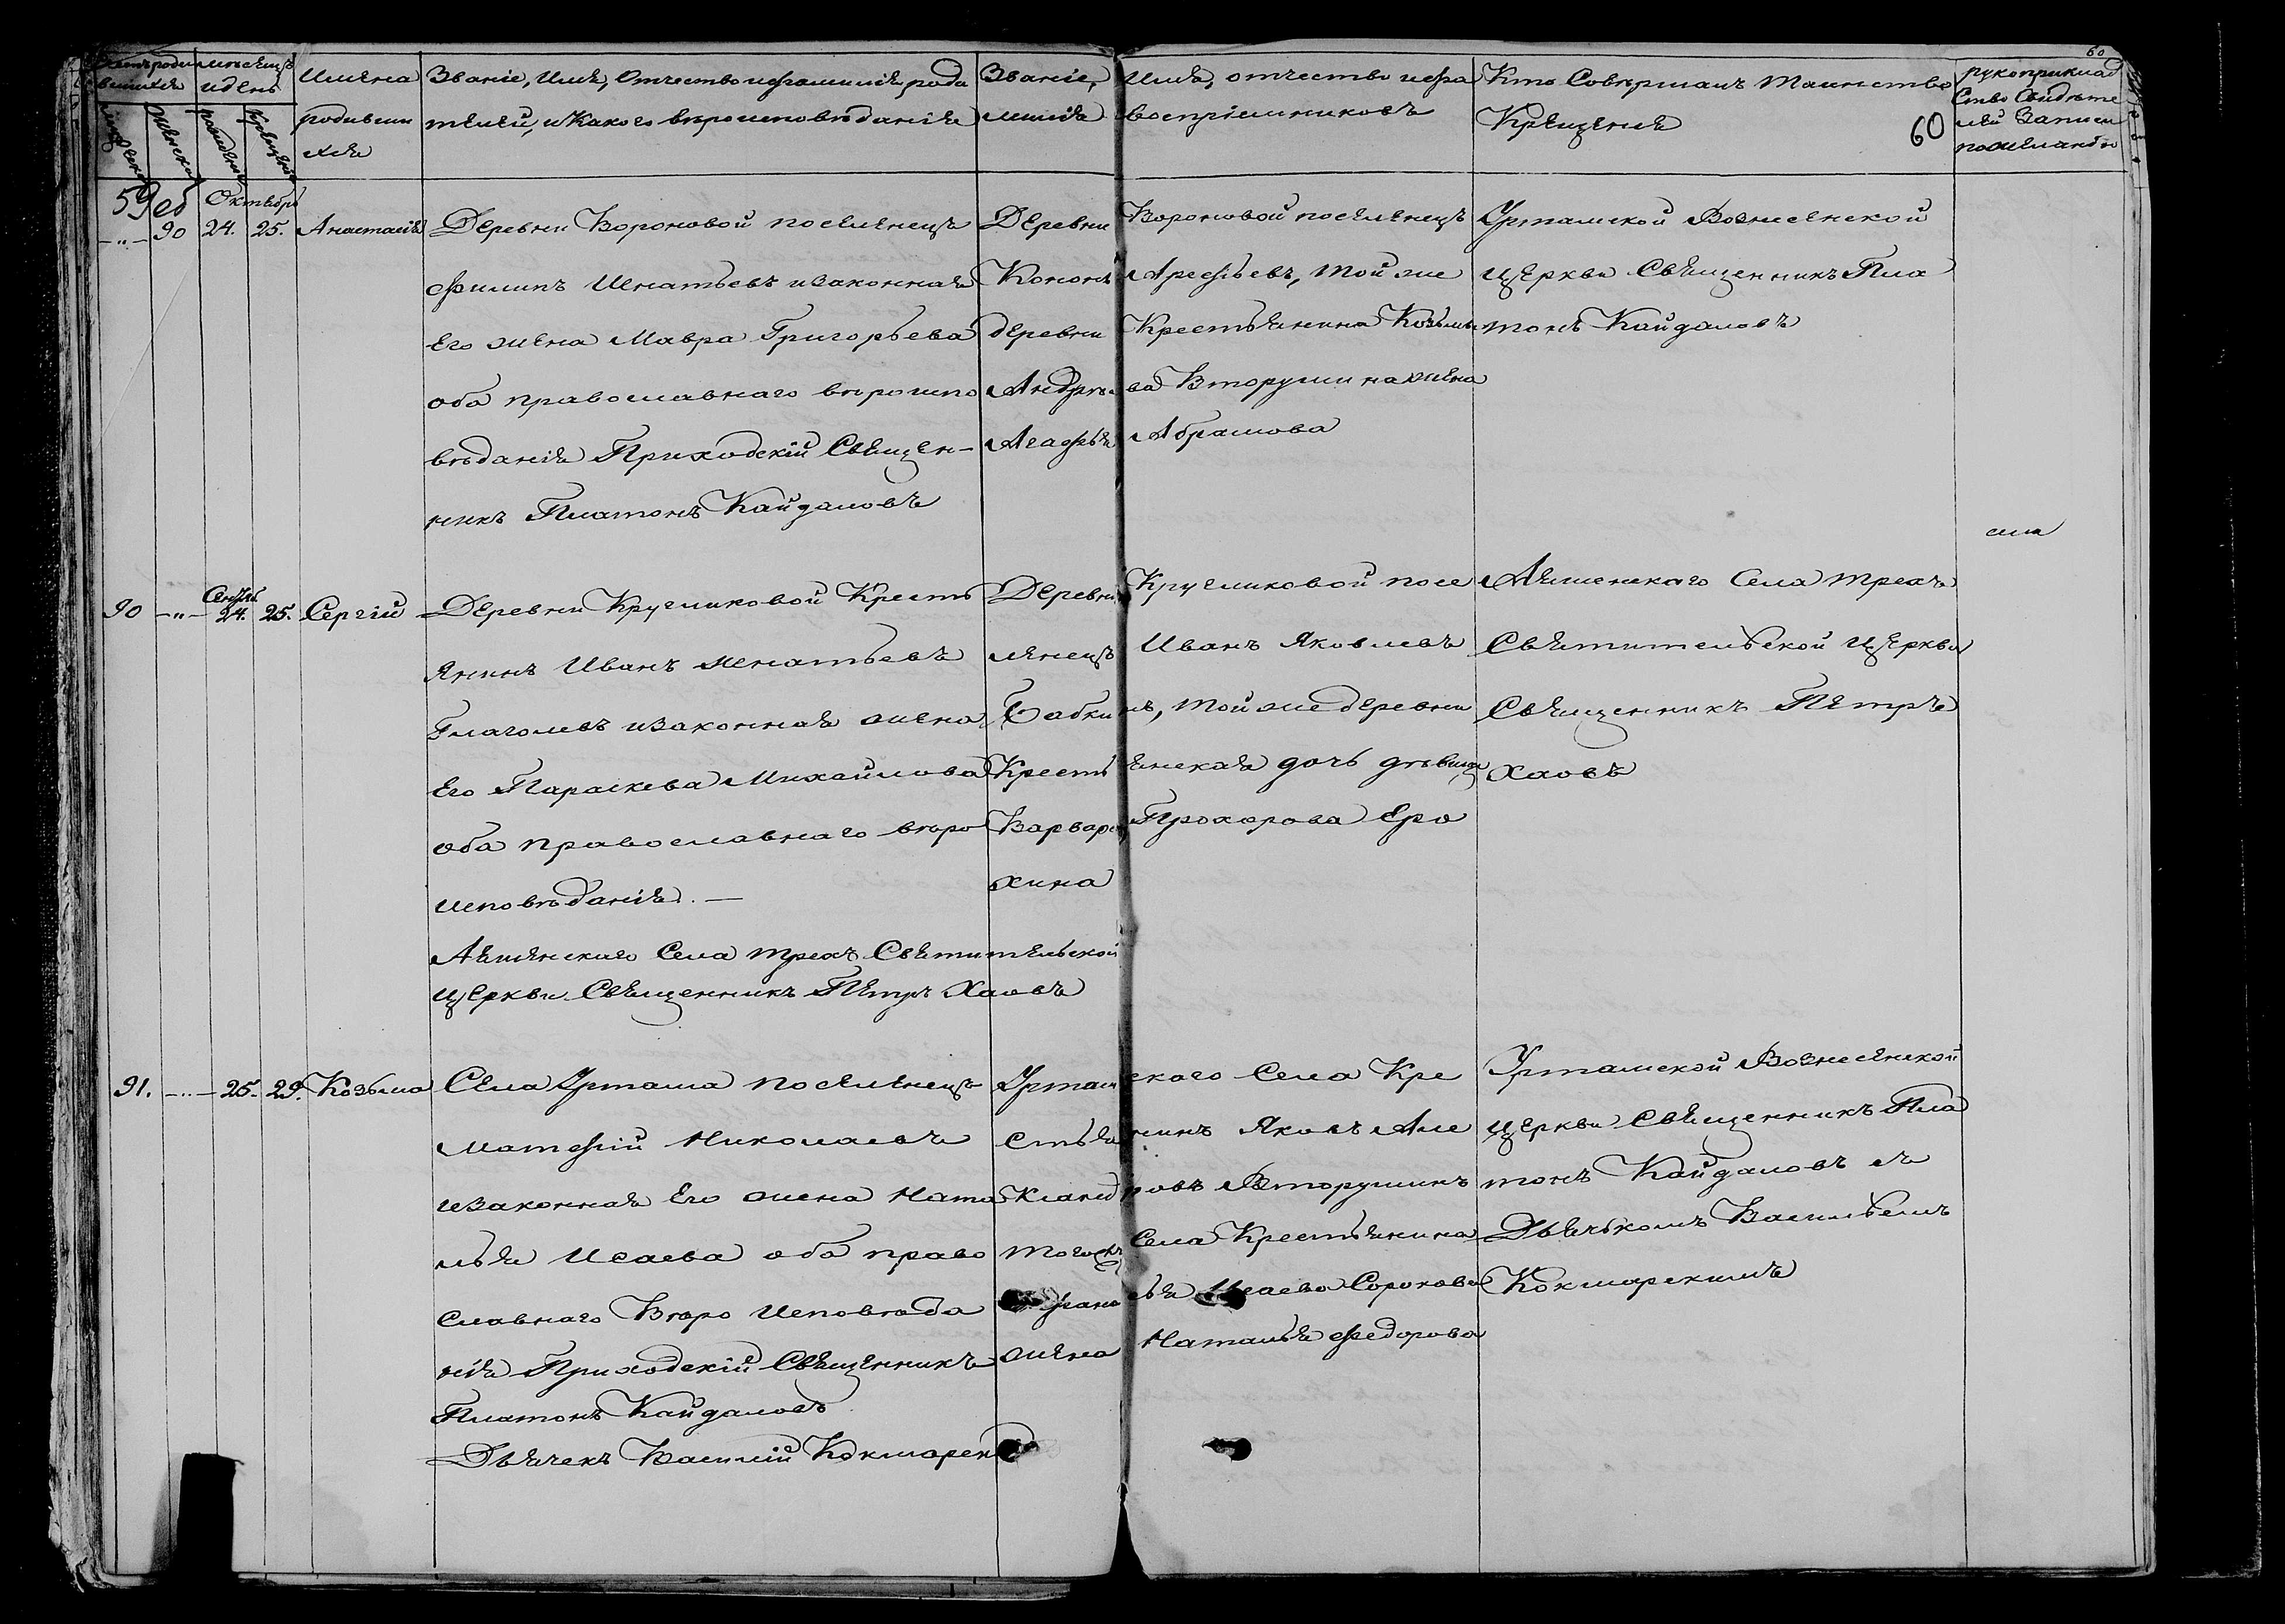 60
Счетъ родив
шихся
мѣсяцъ
и день
Имѣна
родивши
хся
Званіе, Имя, Отчество и фамилія роди
тѣлей, и какого вѣроисповѣданія
Званіе, Имя, отчество и фа
милія воспріемниковъ
Кто Совѣршалъ Таинство
Крѣщенія
60
рукоприклад
Ство Свидѣте
лей Записи
по желанію
59 об
Октябрь
–"– 90 24. 25. Анастасія
Дѣревни Вороновой посѣлѣнецъ
Филипъ Игнатьевъ и законная
Его жѣна Мавра Григорьева
оба православнаго вѣроиспо
вѣданія Приходскій Свящѣн-
никъ Платонъ Кайдаловъ
Дѣревни Вороновой посѣлѣнецъ
Кононъ Арефьевъ, той же
дѣревни Крестьянина Козьмы
Андрѣева Вторушина жѣна
Агафья Абрамова
Уртамской Вознесѣнской
Цѣркви Свящѣнникъ Пла
тонъ Кайдаловъ
90 –"– Сентяб. 24. 25. Сергій
Дѣревни Кругликовой Кресть
янинъ Иванъ Игнатьевъ
Глаголевъ и законная жѣна
Его Параскева Михайлова
оба православнаго вѣро
исповѣданія. —
Аяшѣнскаго Села трехъ Святитѣльской
Цѣркви Свящѣнникъ Пѣтръ Хаовъ
Дѣревни Кругликовой посе
лѣнецъ Иванъ Яковлевъ
Бабкинъ, той же дѣревни
Крестьянская дочь дѣвица
Варвара Прохорова Еро
хина
Аяшенскаго Села трехъ
Святительской Цѣркви
Свящѣнникъ Пѣтръ
Хаовъ
91. –"– 25. 29. Козьма
Сѣла Уртама посѣлѣнецъ
Матфій Николаевъ
и законная Его жена Ната
лья Исаева оба право
Славнаго Вѣро Исповѣда
нія Приходскій Свящѣнникъ
Платонъ Кайдаловъ
Дьячекъ Василій Кокшарск
Уртамскаго Села Кре
стьянинъ Яковъ Але
ксандровъ Вторушинъ
того же Села Крестьянина
Исаева Сорокова
жѣна Наталья Федорова
Уртамской Вознесѣнской
Цѣркви Свящѣнникъ Пла
тонъ Кайдаловъ съ
Дьячькомъ Васильемъ
Кокшарскимъ